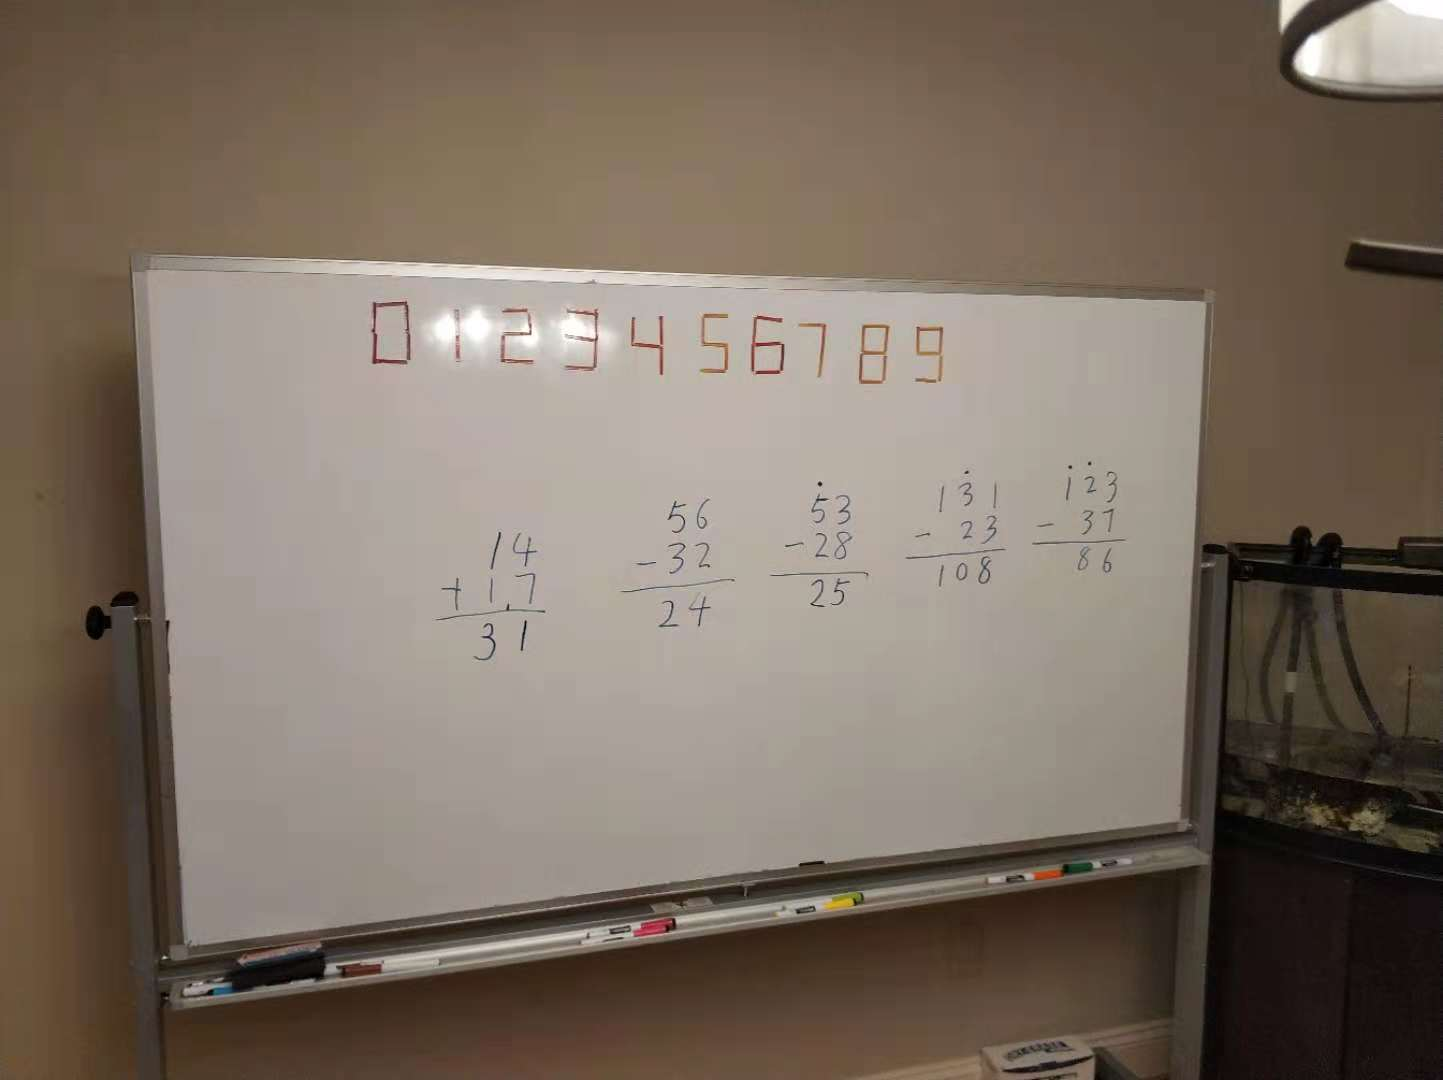 0 1 2 3 4 5 6 7 8 9
14
+ 17
31
56
- 32
24
53
- 28
25
131
- 23
108
123
- 37
86